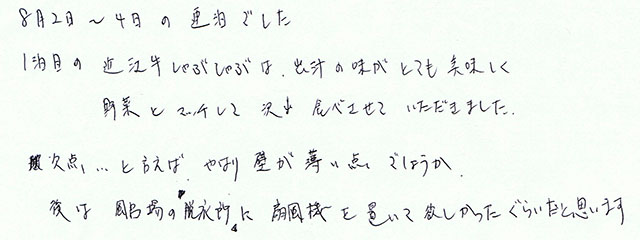 8月2日～4日の連泊でした
1泊目の近江牛しゃぶしゃぶは、出汁の味がとても美味しく
野菜とマッチして沢山食べさせていただきました.
欠点,…と言えば、やはり壁が薄い点でしょうか.
後は風呂場の脱衣所に扇風機を置いて欲しかったぐらいだと思います